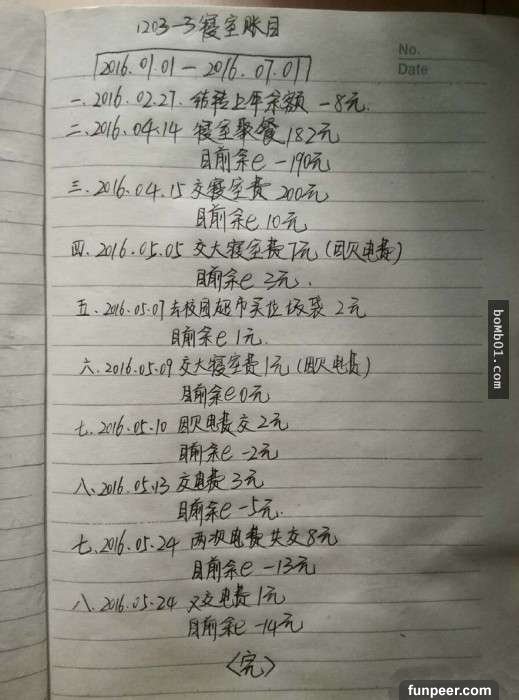 1203-3寝室账目
No.
Date
2016.01.01 — 2016.07.01
一、2016.02.27. 结转上年余额 -8元.
二、2016.04.14 寝室聚餐 182元
目前余e -190元
三、2016.04.15 交寝室费 200元
目前余e 10元
四、2016.05.05 交大寝室费7元(因欠电费)
目前余e 3元.
五、2016.05.07 去校园超市买垃圾袋 2元
目前余e 1元.
六、2016.05.09 交大寝室费1元(因欠电费)
目前余e 0元
七、2016.05.10 因欠电费交2元
目前余e -2元
八、2016.05.13 交电费 3元
目前余e -5元.
七、2016.05.24 两次电费共交8元
目前余e -13元
八、2016.05.24 又交电费1元
目前余e -14元
〈完〉
bomb01.com
funpeer.com